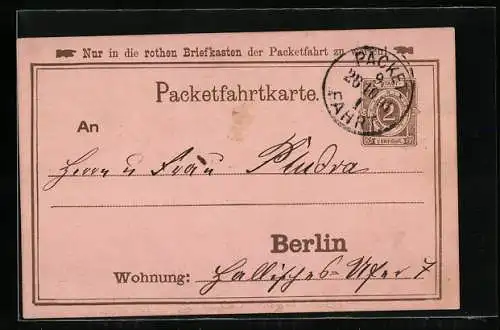 Nur in die rothen Briefkasten der Packetfahrt zu
PACKE
9
26 10
1
FAHRT
2
Packetfahrtkarte.
An
Herrn u Frau Pindra
Berlin
Wohnung: Hallisches-Ufer 7